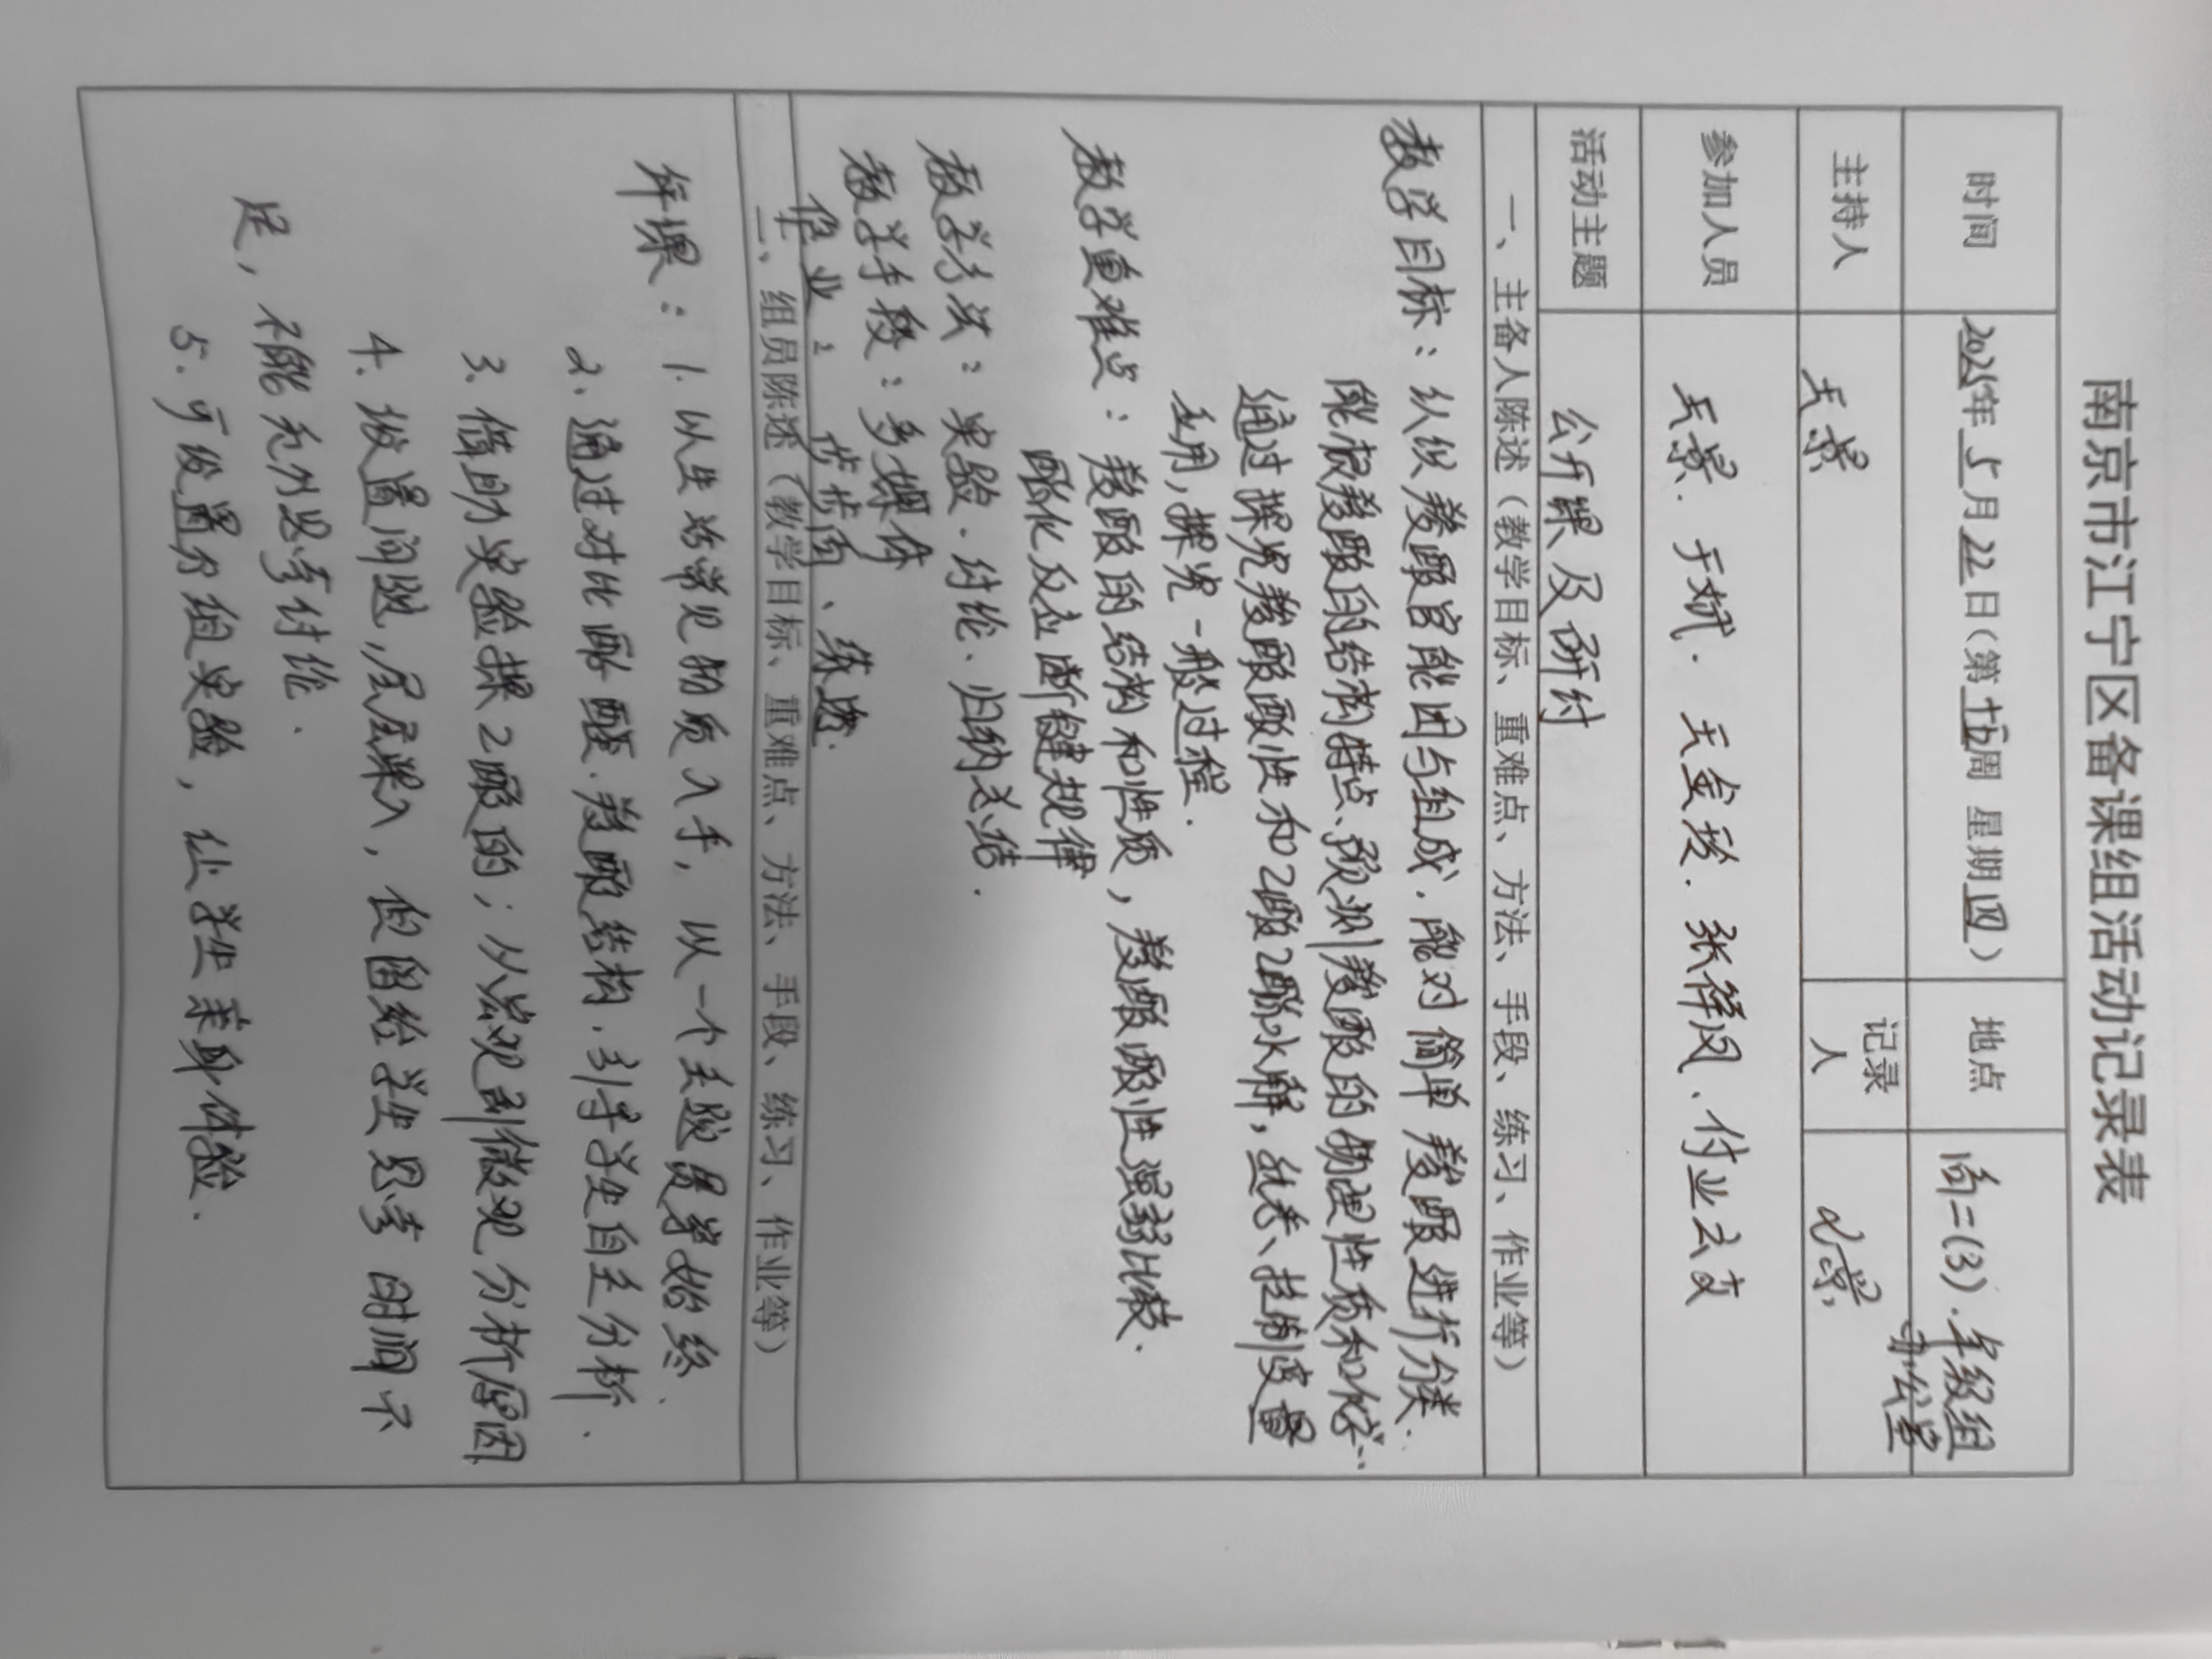 南京市江宁区备课组活动记录表
时间 2025年 5月 22日（第十五周 星期四） 地点 高二(3).年级组办公室
主持人 王景 记录人
参加人员 王景. 于斌. 王金玲. 张祥凤、付业云
活动主题 公开课及研讨
一、主备人陈述（教学目标、重难点、方法、手段、练习、作业等）
教学目标：认识羧酸官能团与组成.能对简单羧酸进行分类.
能根羧酸的结构特点、预测羧酸的物理性质和化学…
通过探究羧酸酸性和乙酸乙酯水解，控制变量
应用,探究一般过程.
教学重难点：羧酸的结构和性质，羧酸酸性强弱比较.
酯化反应断键规律
教学方法：实验.讨论、归纳总结.
教学手段：多媒体
作业：步步高、练透.
二、组员陈述（教学目标、重难点、方法、手段、练习、作业等）
评课：1. 以生活常见物质入手，以一个主题贯穿始终.
2. 通过对比酚醛.羧酸结构.引导学生自主分析.
3. 借助实验探乙酸的；从宏观到微观分析原因
4. 设置问题,层层深入，但留给学生思考时间不
足，不能充分思考讨论.
5. 可设置分组实验，让学生亲身体验.